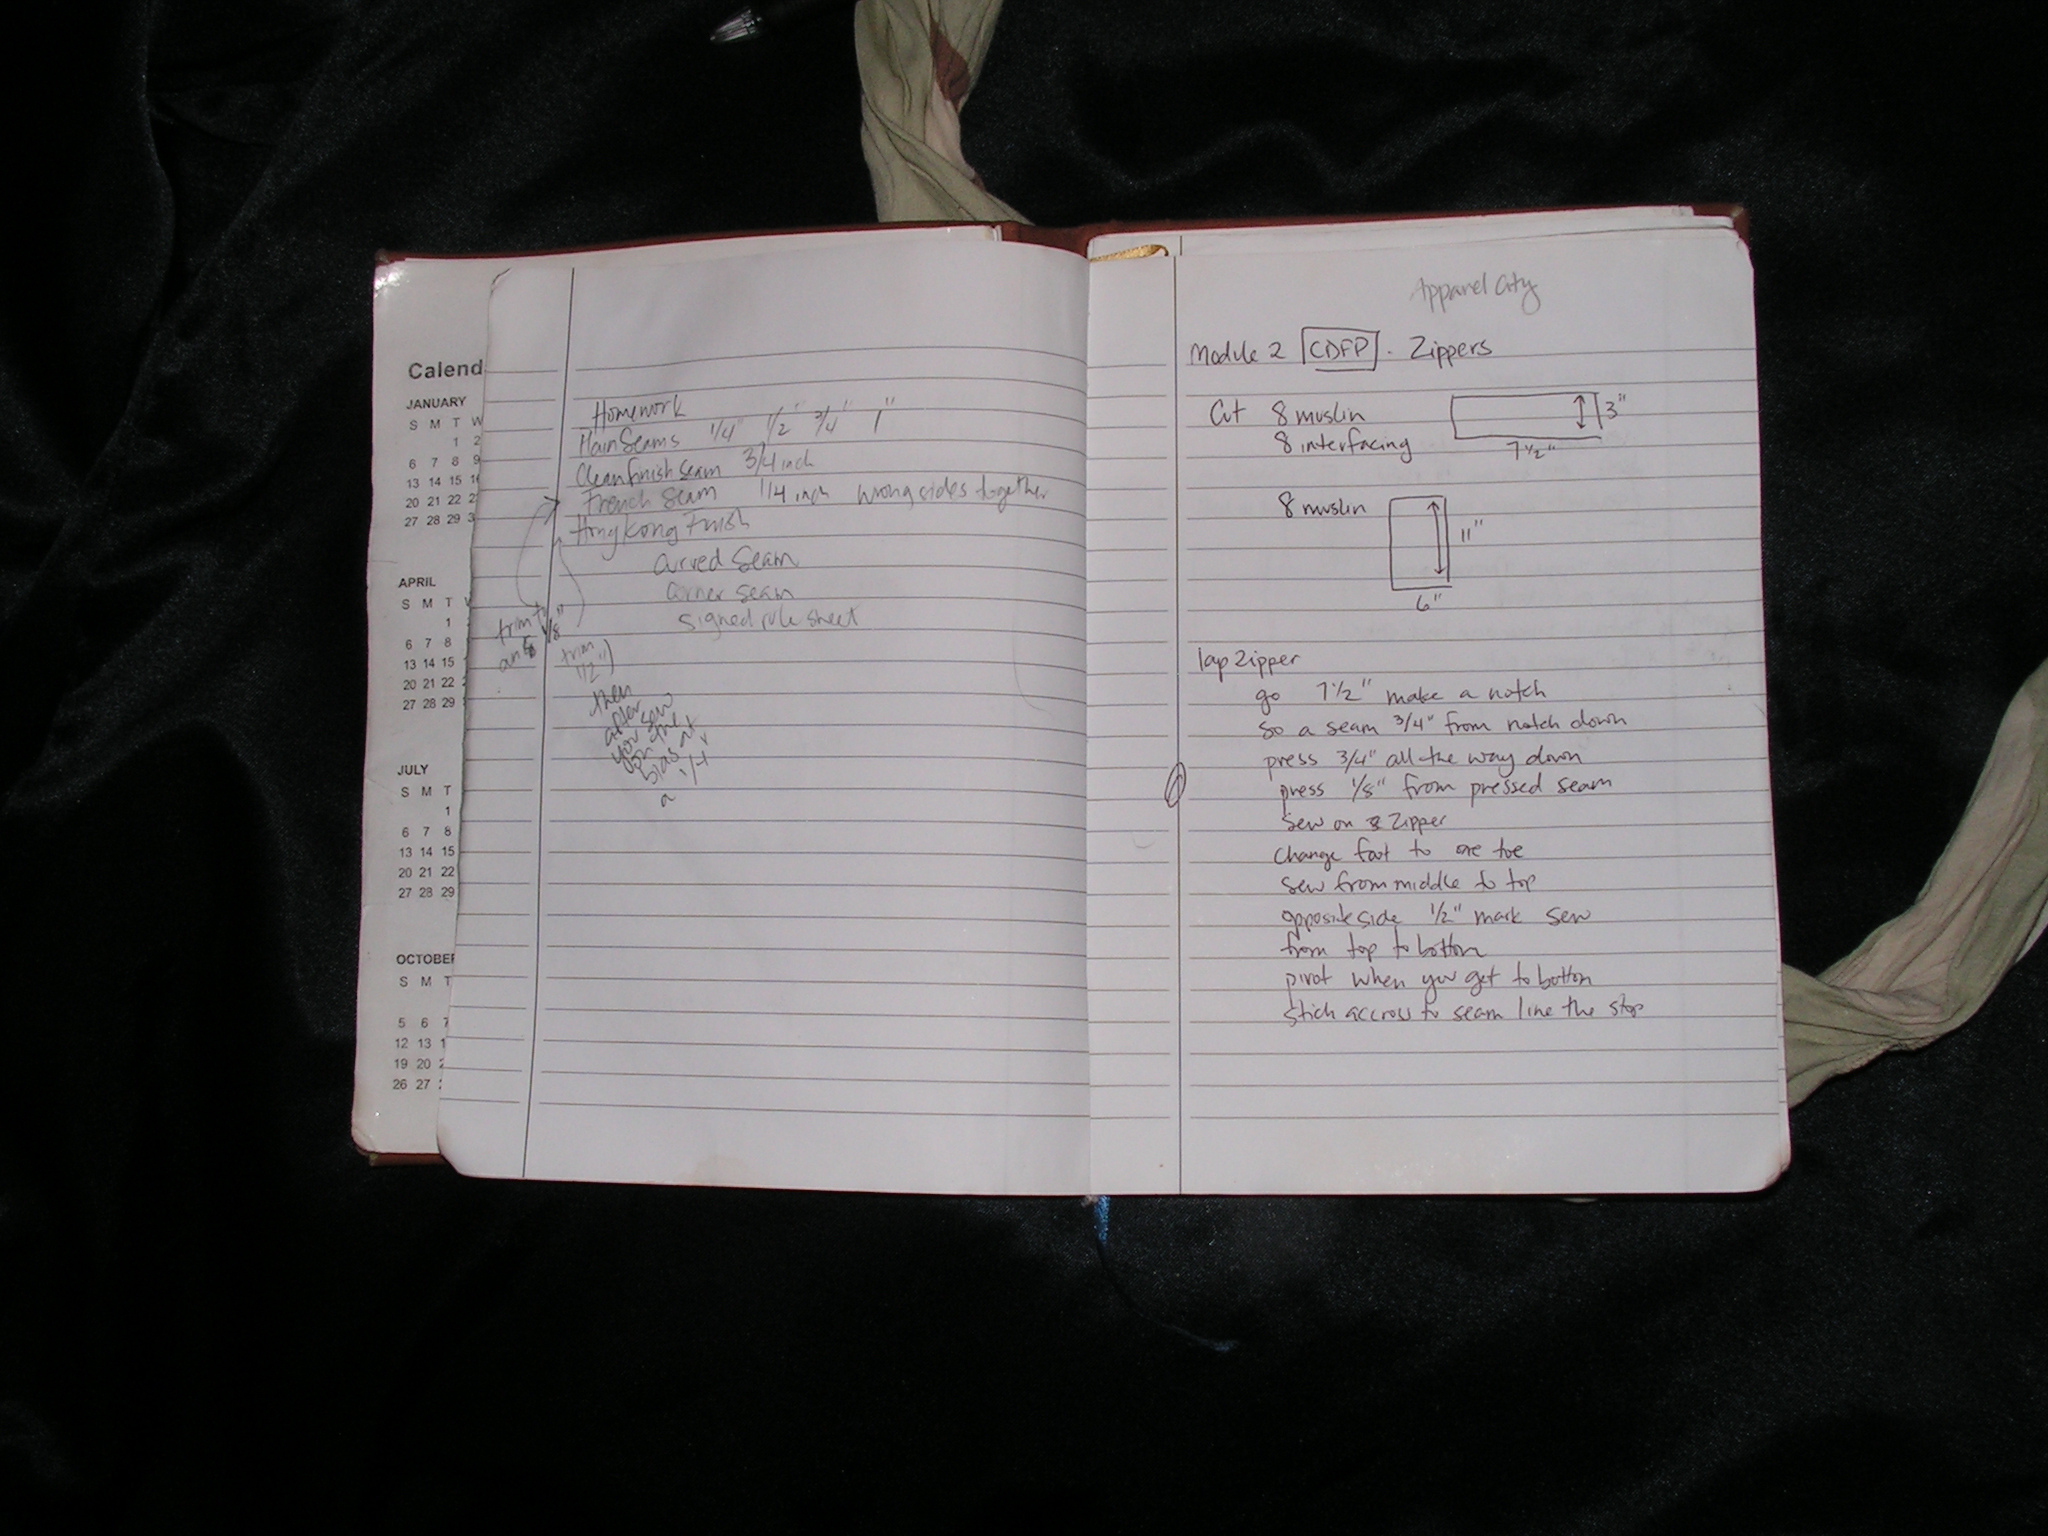 Calend
JANUARY
S M T W
1 2
6 7 8 9
13 14 15 1
20 21 22 2
27 28 29 3
APRIL
S M T
1
6 7 8
13 14 15
20 21 22
27 28 29
JULY
S M T
1
6 7 8
13 14 15
20 21 22
27 28 29
OCTOBER
S M T
5 6 7
12 13 1
19 20 2
26 27
Homework
Plain Seams 1/4" 1/2" 3/4" 1"
Clean finish seam 3/4 inch
French Seam 1/4 inch wrong sides together
Hong Kong Finish
curved Seam
corner seam
signed rule sheet
trim to 1/8"
trim
1/2")
then
after
you sew
on the
bias at
1/4
a
Apparel City
Module 2 CDFP. Zippers
Cut 8 muslin
8 interfacing
3"
7 1/2"
8 muslin
11"
6"
lap Zipper
go 7 1/2" make a notch
so a seam 3/4" from notch down
press 3/4" all the way down
press 1/8" from pressed seam
Sew on Zipper
Change foot to one toe
Sew from middle to top
opposite side 1/2" mark sew
from top to bottom
pivot when you get to bottom
stich accross to seam line the stop